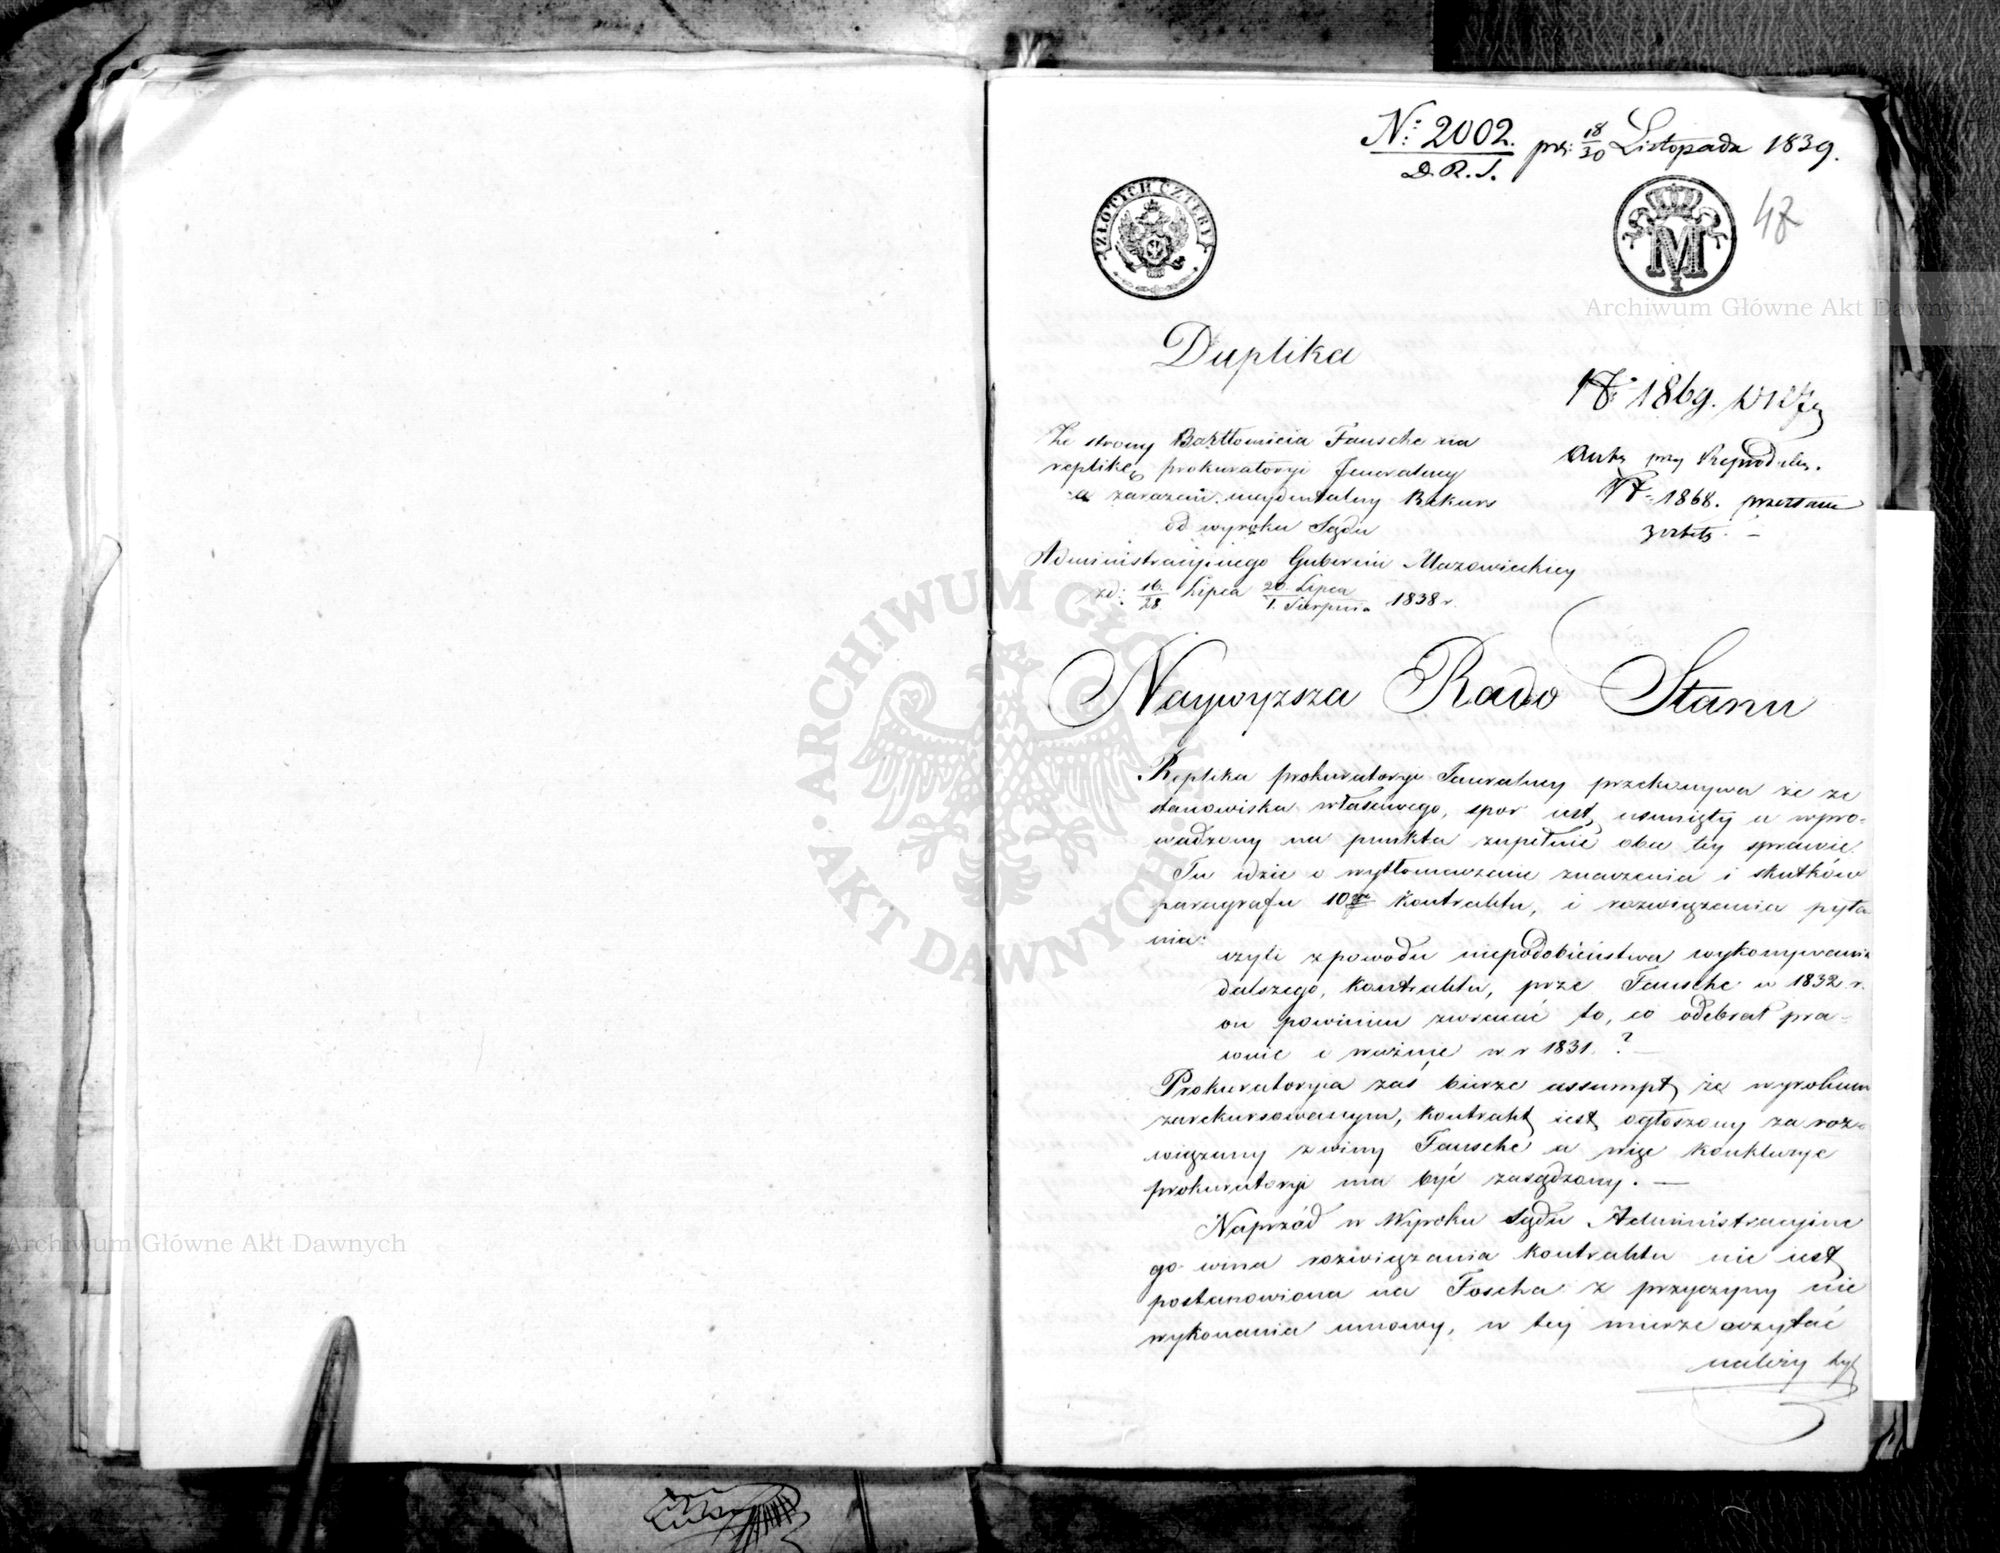 No: 2002. prs: 18/30 Listopada 1839.
D. R. S.
ZŁOTYCH CZTERY
M
47
Duplika
No 1869.
Ze strony Bartłomieia Fausche na
replikę prokuratoryi Jeneralney
a zarazem incydentalny Rekurs
od wyroku Sądu
Administracyinego Gubernii Mazowieckiey
zd: 16/28 Lipca 20 Lipca/1. Sierpnia 1838 r.
przy
No 1868. przesłane
Naywyższa Rado Stanu
Replika prokuratoryi Jeneralney przekonywa że ze
stanowiska właściwego, spor iest usunięty a wpro-
wadzony na punkta zupełnie obce tey sprawie.
Tu idzie o wytłomaczenie znaczenia i skutków
paragrafu 10go kontraktu, i rozwiązania pyta
nia:
czyli z powodu niepodobieństwa wykonywania
dalszego, kontraktu, prze Fausche w 1832 r.
on powinien zwracać to, co odebrał pra-
wnie i ważnie w r 1831. ? —
Prokuratorya zaś bierze assumpt, że wyrokiem
zarekursowanym, kontrakt iest ogłoszony za roz-
wiązany z winy Fausche a więc konkluzye
prokuratoryi ma być zasądzony. —
Naprzód w Wyroku Sądu Administracyine
go wina rozwiązania kontraktu nie iest
postanowiona na Foscha z przyczyny nie
wykonania umowy, w tey mierze czytać
należy tyl
Archiwum Główne Akt Dawnych
Archiwum Główne Akt Dawnych
ARCHIWUM GŁÓWNE AKT DAWNYCH